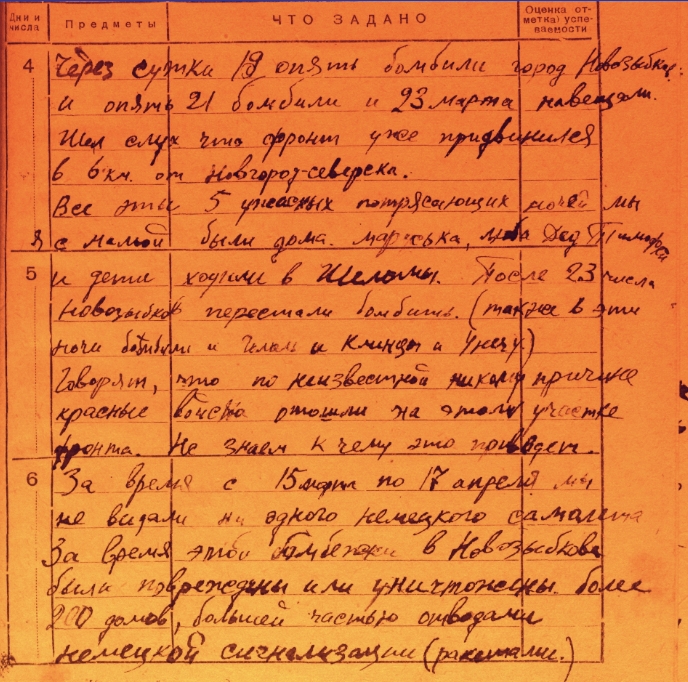 Дни и числа Предметы ЧТО ЗАДАНО Оценка (отметка) успеваемости
4 Через сутки 19 опять бомбили город Новозыбков.
и опять 21 бомбили и 23 марта навещали.
Шел слух что фронт уже придвинился
в 6 км. от Новгород-северска.
Все эти 5 ужасных потрясающих ночей мы
Я с мамой были дома. Маруська, люба Дед Тимофей
5 и дети ходили в Шеломы. После 23 числа
Новозыбков перестали бомбить. (также в эти
ночи бомбили и и Клинцы и Унечу)
Говорят, что по неизвестной никому причине
красные войска отошли на этом участке
фронта. Не знаем к чему это приведет.
6 За время с 15 марта по 17 апреля мы
не видали ни одного немецкого самолета
За время этой бомбежки в Новозыбкове
были повреждены или уничтожены более
200 домов, большей частью
немецкой сигнализации (ракетами.)